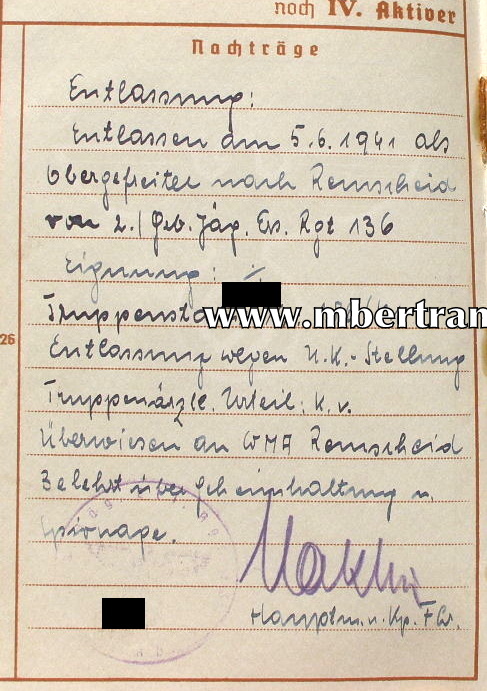 noch IV. Aktiver
Nachträge
Entlassung:
Entlassen am 5.6.1941 als
Obergefreiter nach Remscheid
von 2./Geb. Jäg. Ers. Rgt 136
Eignung: ./.
www.mbertran
26
Entlassung wegen U.K.-Stellung
Truppenärztl. Urteil: K.v.
Überwiesen an WMA Remscheid
Belehrt über Geheimhaltung u.
Spionage.
Hauptm. u. Kp. Fhr.